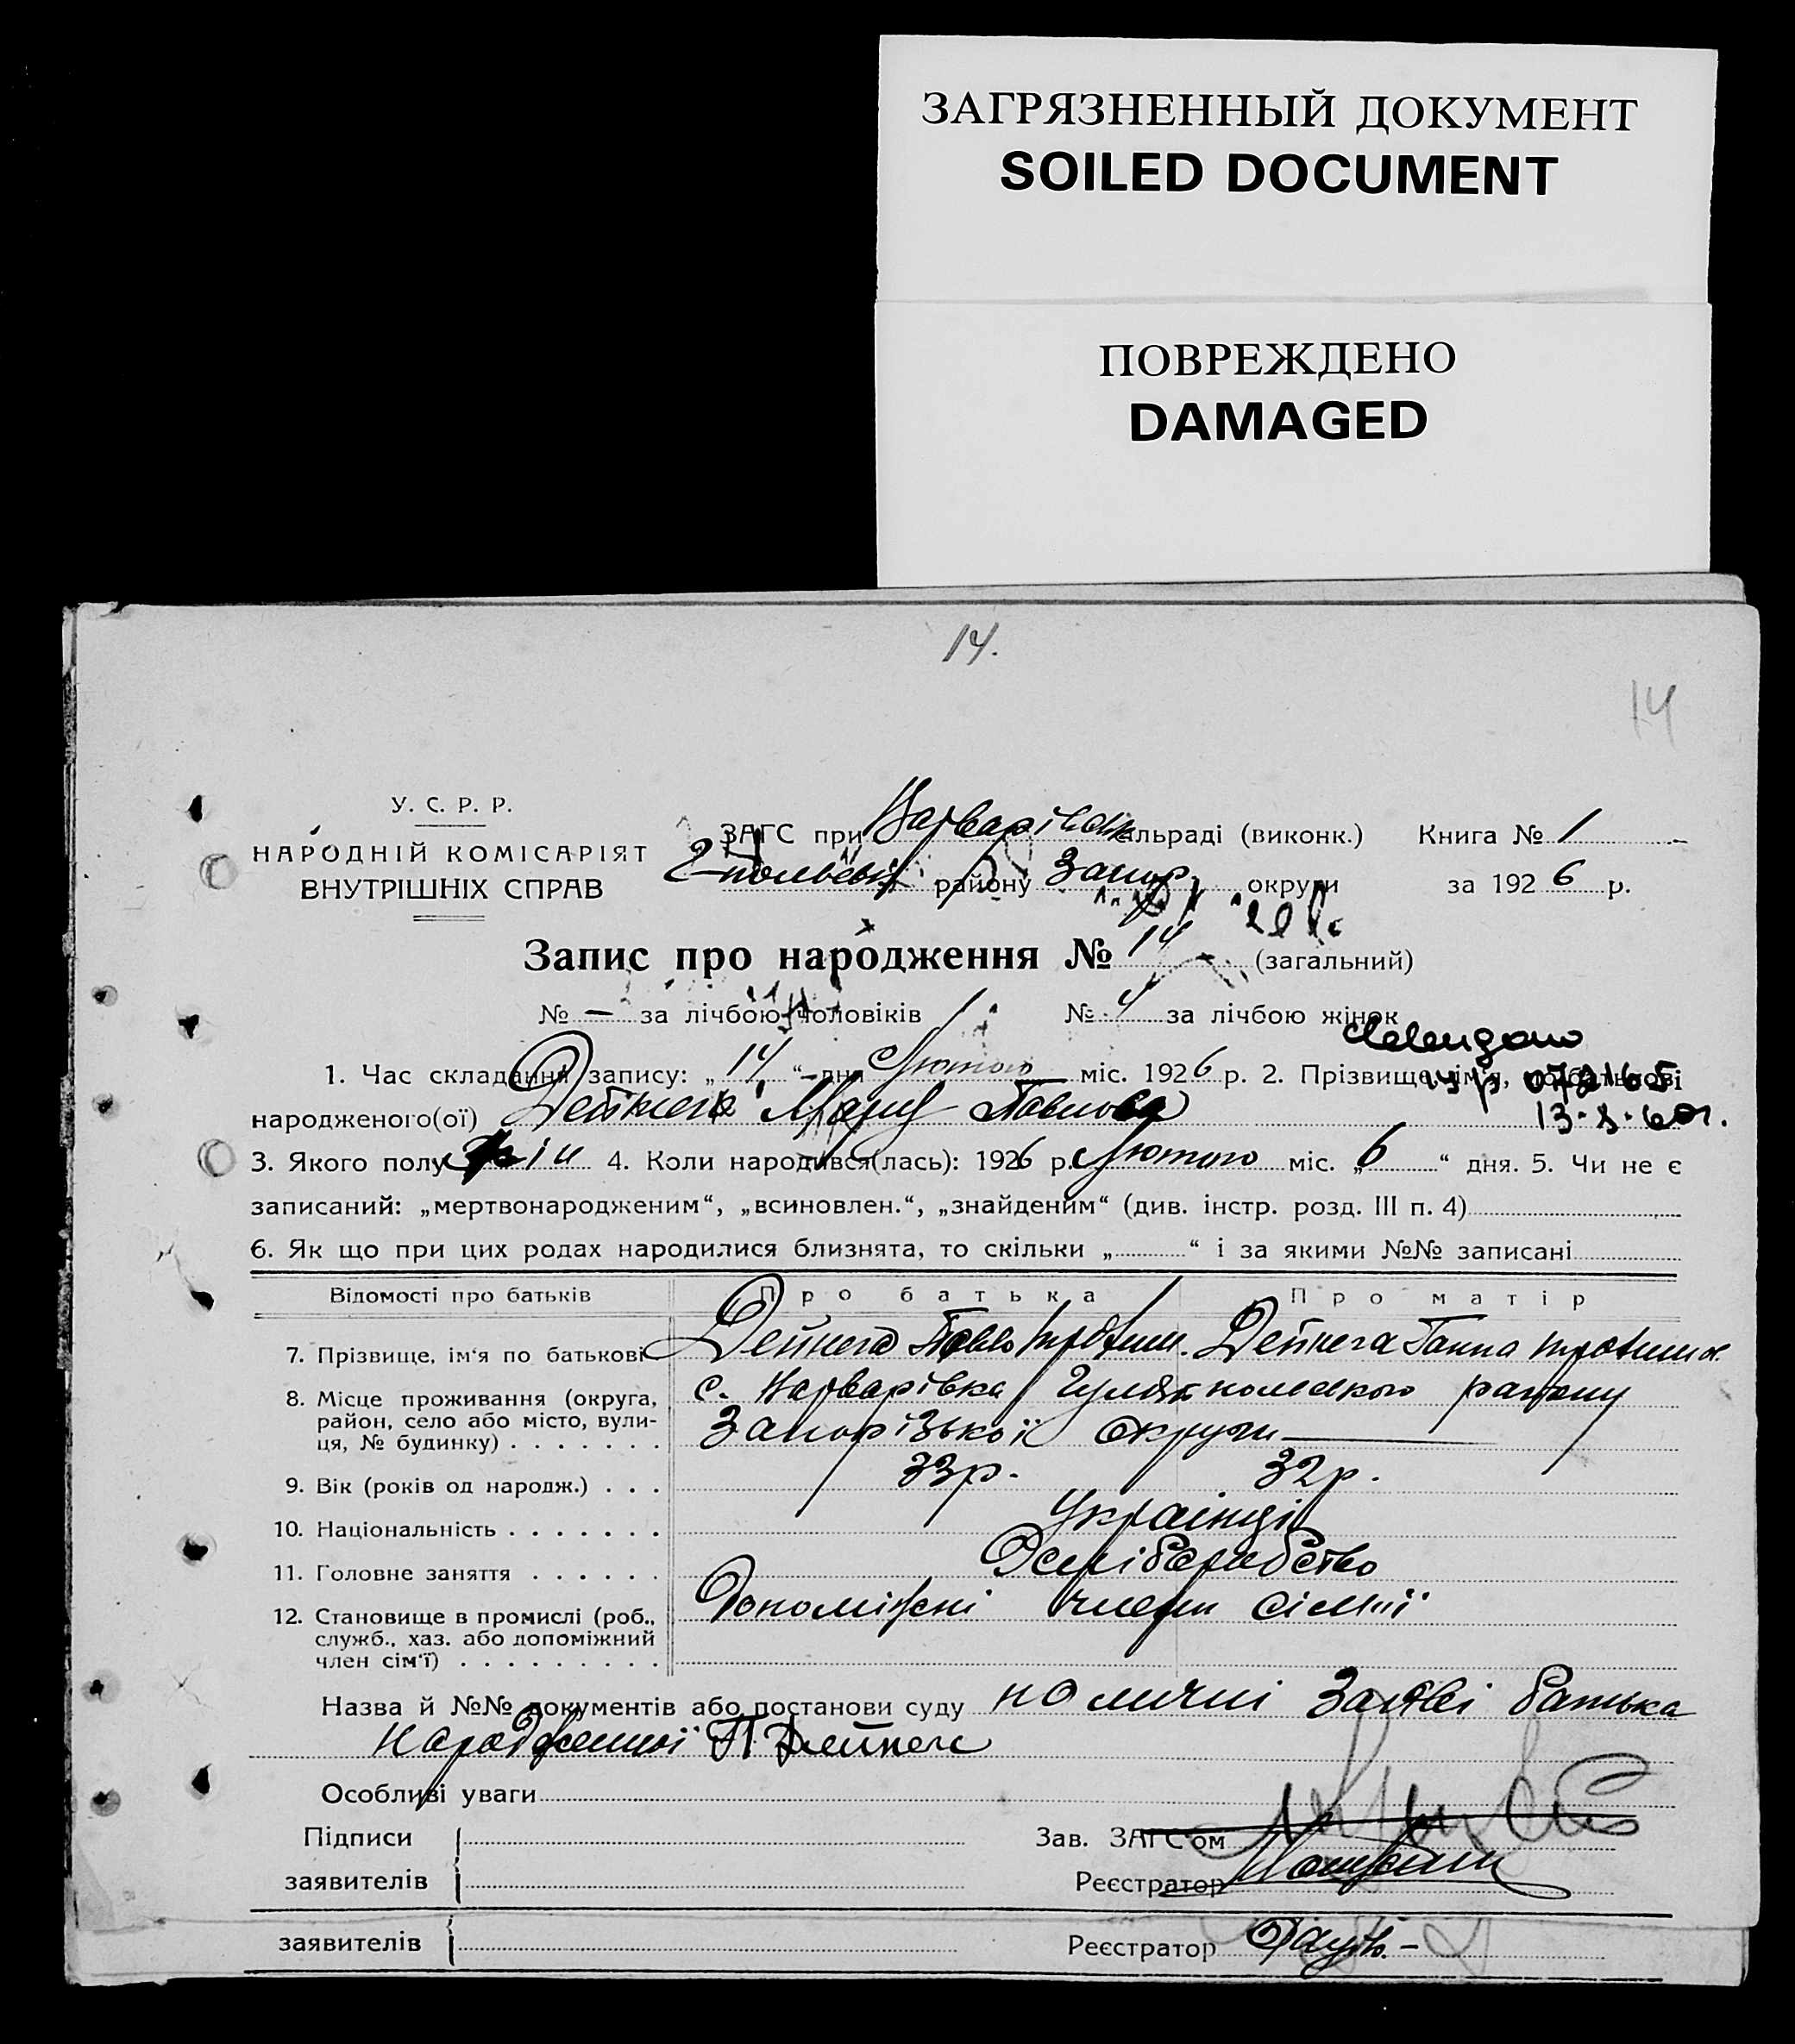 ЗАГРЯЗНЕННЫЙ ДОКУМЕНТ
SOILED DOCUMENT
ПОВРЕЖДЕНО
DAMAGED
14.
14
У. С. Р. Р.
НАРОДНІЙ КОМІСАРІЯТ
ВНУТРІШНІХ СПРАВ
ЗАГС при сільраді (виконк.) Книга № 1
району Запор. округи за 1926 р.
Запис про народження № 14 (загальний)
№ — за лічбою чоловіків № 4 за лічбою жінок
1. Час складання запису: „14“ дня Лютого міс. 1926 р. 2. Прізвище, ім'я, по батькові
13.8.60г.
народженого(ої) Дейнега Марія Павлова
3. Якого полу жін 4. Коли народився(лась): 1926 р. Лютого міс. „6“ дня. 5. Чи не є
записаний: „мертвонародженим“, „всиновлен.“, „знайденим“ (див. інстр. розд. III п. 4)
6. Як що при цих родах народилися близнята, то скільки „ “ і за якими №№ записані
Відомості про батьків Про батька Про матір
7. Прізвище, ім'я по батькові Дейнега Павло Трохим. Дейнега Ганна
8. Місце проживання (округа, район, село або місто, вулиця, № будинку) с. Варварівка Гуляйпольського району
Запорізької округи
9. Вік (років од народж.) 33р. 32р.
10. Національність Українці
11. Головне заняття Хліборобство
12. Становище в промислі (роб., служб., хаз. або допоміжний член сім'ї) Допоміжні члени сімії
Назва й №№ документів або постанови суду по личній заяві батька
народженної П Дейнега
Особливі уваги
Підписи
заявителів
Зав. ЗАГС'ом
Реєстратор
заявителів Реєстратор